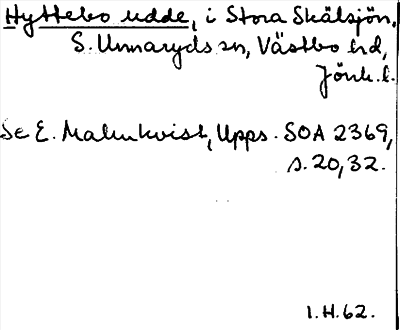 Hyttebo udde, i Stora Skälsjön,
S. Unnaryds sn, Västbo hd,
Jönk. l.
Se E. Malmkvist, Upps. SOA 2369,
s. 20, 32.
1.H.62.